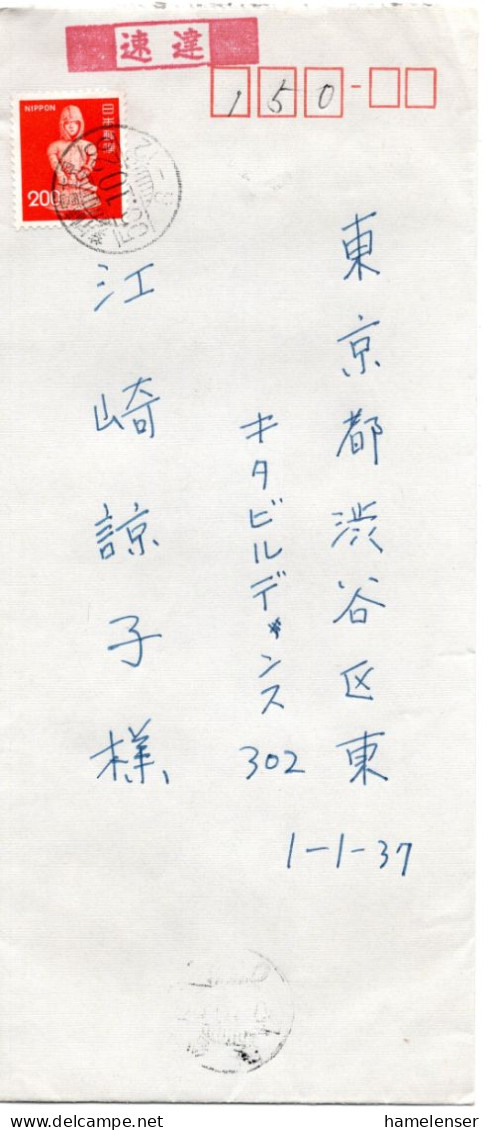 速達
150
NIPPON
日本郵便
200
東京都渋谷区東
1-1-37
キタビルデンス
302
江崎諒子様
www.delcampe.net
hamelenser